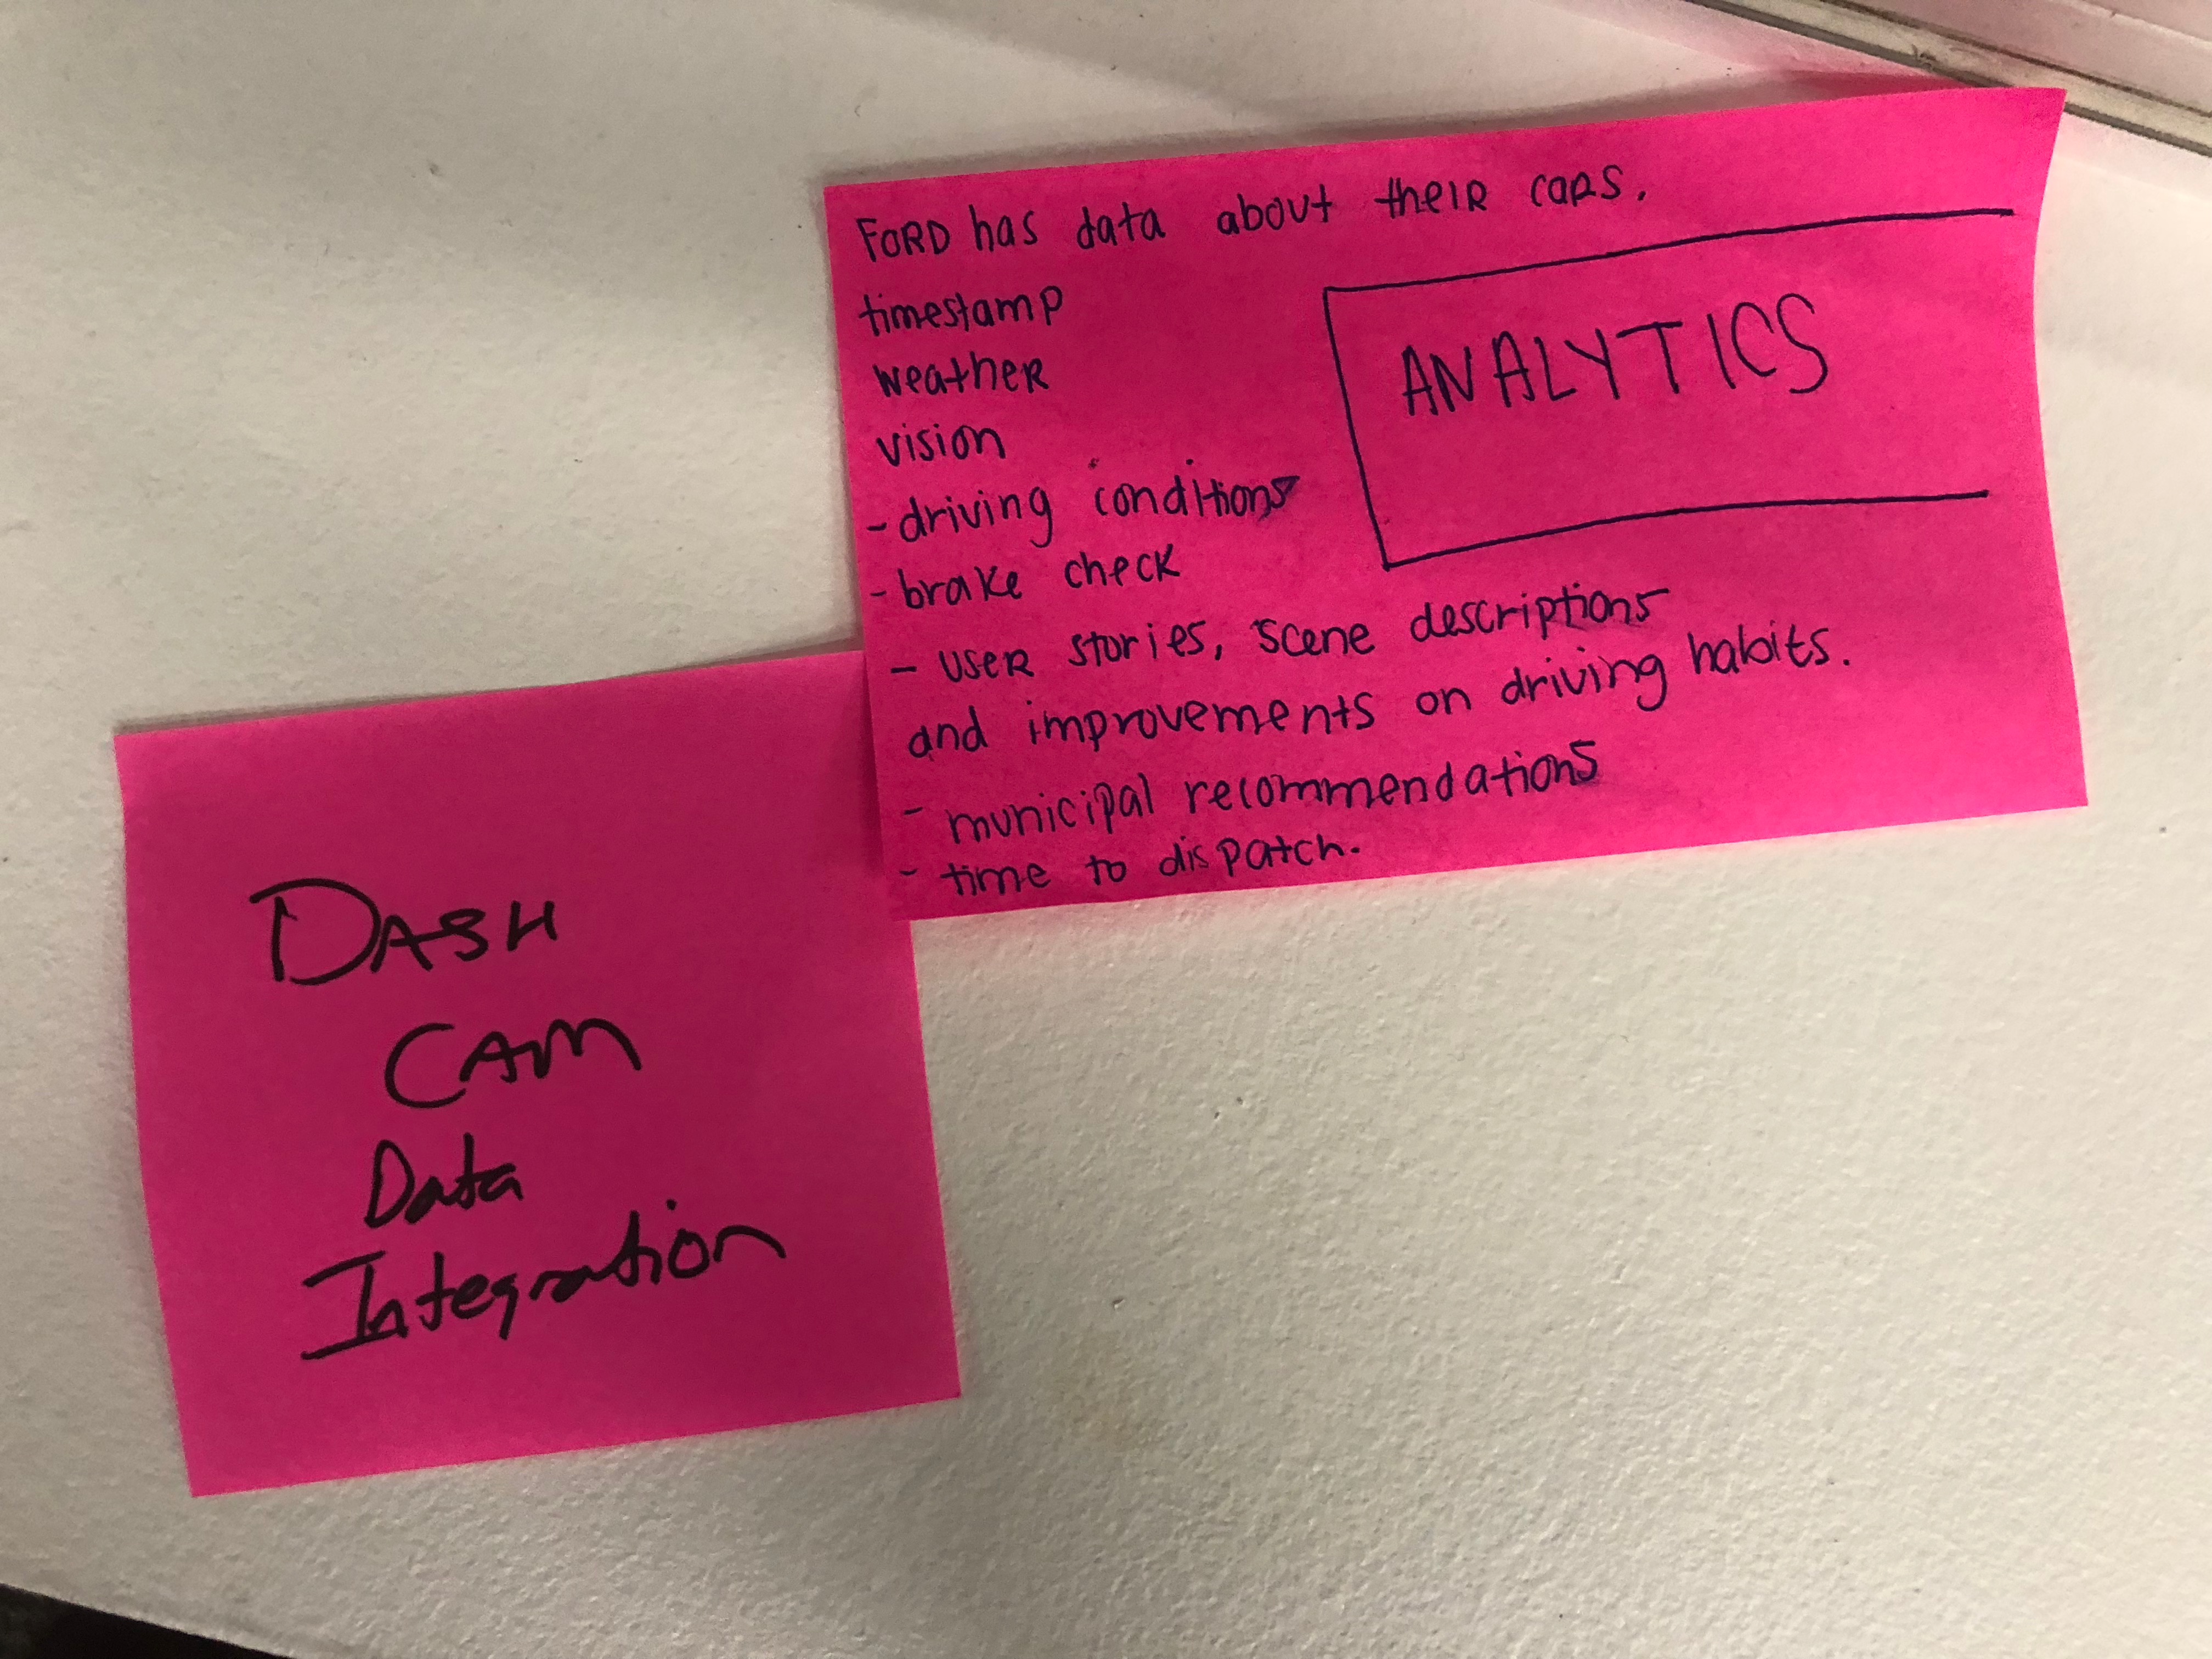 FORD has data about their cars.
timestamp
weather
vision
ANALYTICS
- driving conditions
- brake check
- user stories, scene descriptions
and improvements on driving habits.
- municipal recommendations
- time to dispatch.
DASH
CAM
Data
Integration